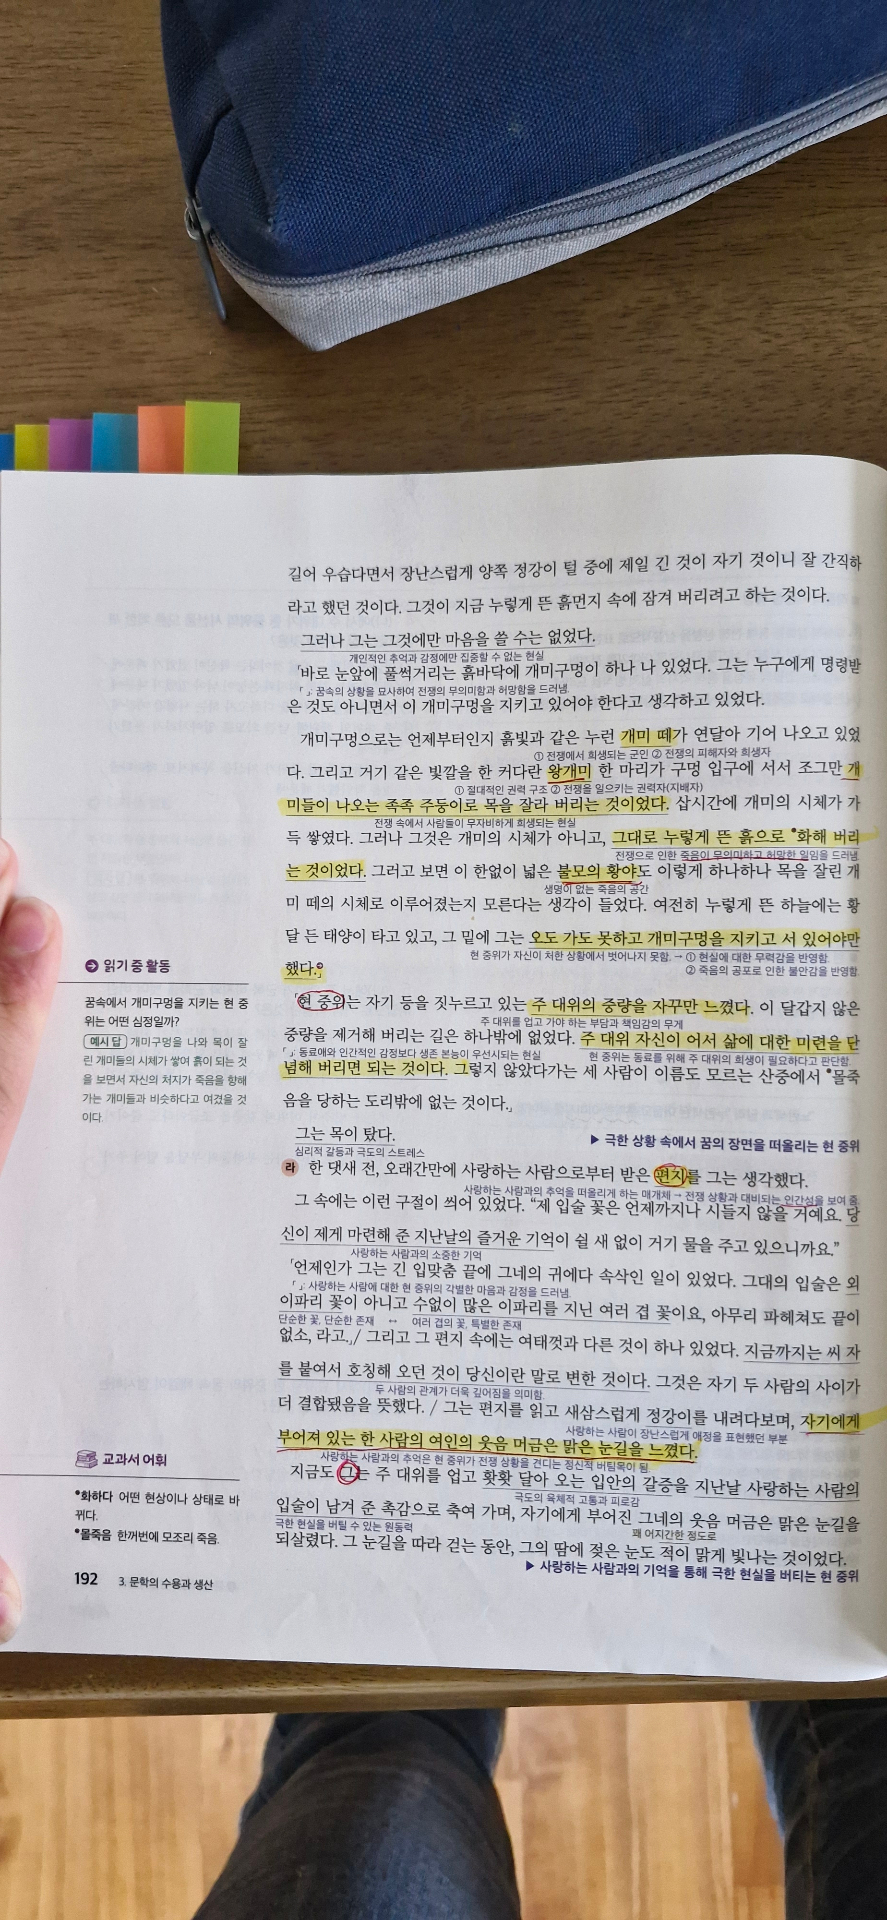 길어 우습다면서 장난스럽게 양쪽 정강이 털 중에 제일 긴 것이 자기 것이니 잘 간직하
라고 했던 것이다. 그것이 지금 누렇게 뜬 흙먼지 속에 잠겨 버리려고 하는 것이다.
그러나 그는 그것에만 마음을 쓸 수는 없었다.
개인적인 추억과 감정에만 집중할 수 없는 현실
「바로 눈앞에 풀썩거리는 흙바닥에 개미구멍이 하나 나 있었다. 그는 누구에게 명령받
「 」: 꿈속의 상황을 묘사하여 전쟁의 무의미함과 허망함을 드러냄.
은 것도 아니면서 이 개미구멍을 지키고 있어야 한다고 생각하고 있었다.
개미구멍으로는 언제부터인지 흙빛과 같은 누런 개미 떼가 연달아 기어 나오고 있었
① 전쟁에서 희생되는 군인 ② 전쟁의 피해자와 희생자
다. 그리고 거기 같은 빛깔을 한 커다란 왕개미 한 마리가 구멍 입구에 서서 조그만 개
① 절대적인 권력 구조 ② 전쟁을 일으키는 권력자(지배자)
미들이 나오는 족족 주둥이로 목을 잘라 버리는 것이었다. 삽시간에 개미의 시체가 가
전쟁 속에서 사람들이 무자비하게 희생되는 현실
득 쌓였다. 그러나 그것은 개미의 시체가 아니고, 그대로 누렇게 뜬 흙으로 *화해 버리
전쟁으로 인한 죽음이 무의미하고 허망한 일임을 드러냄.
는 것이었다. 그러고 보면 이 한없이 넓은 불모의 황야도 이렇게 하나하나 목을 잘린 개
생명이 없는 죽음의 공간
미 떼의 시체로 이루어졌는지 모른다는 생각이 들었다. 여전히 누렇게 뜬 하늘에는 황
달 든 태양이 타고 있고, 그 밑에 그는 오도 가도 못하고 개미구멍을 지키고 서 있어야만
현 중위가 자신이 처한 상황에서 벗어나지 못함. → ① 현실에 대한 무력감을 반영함.
했다.」
② 죽음의 공포로 인한 불안감을 반영함.
➔ 읽기 중 활동
꿈속에서 개미구멍을 지키는 현 중
위는 어떤 심정일까?
예시 답 개미구멍을 나와 목이 잘
린 개미들의 시체가 쌓여 흙이 되는 것
을 보면서 자신의 처지가 죽음을 향해
가는 개미들과 비슷하다고 여겼을 것
이다.
「현 중위는 자기 등을 짓누르고 있는 주 대위의 중량을 자꾸만 느꼈다. 이 달갑지 않은
주 대위를 업고 가야 하는 부담과 책임감의 무게
중량을 제거해 버리는 길은 하나밖에 없었다. 주 대위 자신이 어서 삶에 대한 미련을 단
「 」: 동료애와 인간적인 감정보다 생존 본능이 우선시되는 현실
현 중위는 동료를 위해 주 대위의 희생이 필요하다고 판단함.
념해 버리면 되는 것이다. 그렇지 않았다가는 세 사람이 이름도 모르는 산중에서 *몰죽
음을 당하는 도리밖에 없는 것이다.」
그는 목이 탔다.
심리적 갈등과 극도의 스트레스
▶ 극한 상황 속에서 꿈의 장면을 떠올리는 현 중위
라 한 댓새 전, 오래간만에 사랑하는 사람으로부터 받은 편지를 그는 생각했다.
사랑하는 사람과의 추억을 떠올리게 하는 매개체 → 전쟁 상황과 대비되는 인간성을 보여 줌.
그 속에는 이런 구절이 씌어 있었다. “제 입술 꽃은 언제까지나 시들지 않을 거예요. 당
신이 제게 마련해 준 지난날의 즐거운 기억이 쉴 새 없이 거기 물을 주고 있으니까요.”
사랑하는 사람과의 소중한 기억
「언제인가 그는 긴 입맞춤 끝에 그네의 귀에다 속삭인 일이 있었다. 그대의 입술은 외
「 」: 사랑하는 사람에 대한 현 중위의 각별한 마음과 감정을 드러냄.
이파리 꽃이 아니고 수없이 많은 이파리를 지닌 여러 겹 꽃이요, 아무리 파헤쳐도 끝이
단순한 꽃, 단순한 존재 ↔ 여러 겹의 꽃, 특별한 존재
없소, 라고.」/ 그리고 그 편지 속에는 여태껏과 다른 것이 하나 있었다. 지금까지는 씨 자
를 붙여서 호칭해 오던 것이 당신이란 말로 변한 것이다. 그것은 자기 두 사람의 사이가
두 사람의 관계가 더욱 깊어짐을 의미함.
더 결합됐음을 뜻했다. / 그는 편지를 읽고 새삼스럽게 정강이를 내려다보며, 자기에게
사랑하는 사람이 장난스럽게 애정을 표현했던 부분
부어져 있는 한 사람의 여인의 웃음 머금은 맑은 눈길을 느꼈다.
사랑하는 사람과의 추억은 현 중위가 전쟁 상황을 견디는 정신적 버팀목이 됨.
지금도 그는 주 대위를 업고 홧홧 달아 오는 입안의 갈증을 지난날 사랑하는 사람의
극도의 육체적 고통과 피로감
입술이 남겨 준 촉감으로 축여 가며, 자기에게 부어진 그네의 웃음 머금은 맑은 눈길을
극한 현실을 버틸 수 있는 원동력
꽤 어지간한 정도로
되살렸다. 그 눈길을 따라 걷는 동안, 그의 땀에 젖은 눈도 적이 맑게 빛나는 것이었다.
▶ 사랑하는 사람과의 기억을 통해 극한 현실을 버티는 현 중위
교과서 어휘
*화하다 어떤 현상이나 상태로 바
뀌다.
*몰죽음 한꺼번에 모조리 죽음.
192 3. 문학의 수용과 생산